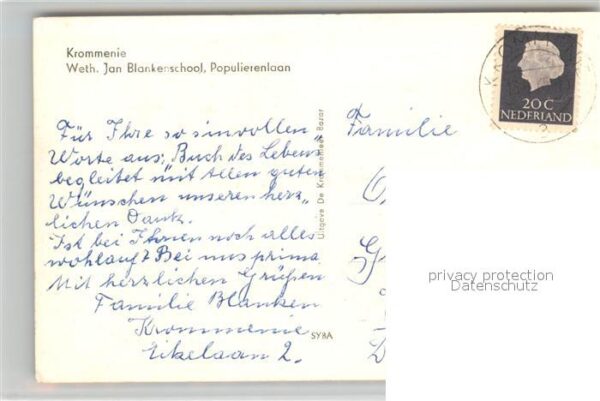 Krommenie
Weth. Jan Blankenschool, Populierenlaan
Für Ihre so sinnvollen
Worte aus, Buch des Lebens
begleitet mit allen guten
Wünschen unseren herz„
lichen Dank.
Ist bei Ihnen noch alles
wohlauf? Bei uns prima
Mit herzlichen Grüßen
Familie Blanken
Krommenie
Eikelaan 2.
SYBA
Uitgave De Krommeniese Bazar
Familie
20 C
NEDERLAND
privacy protection
Datenschutz